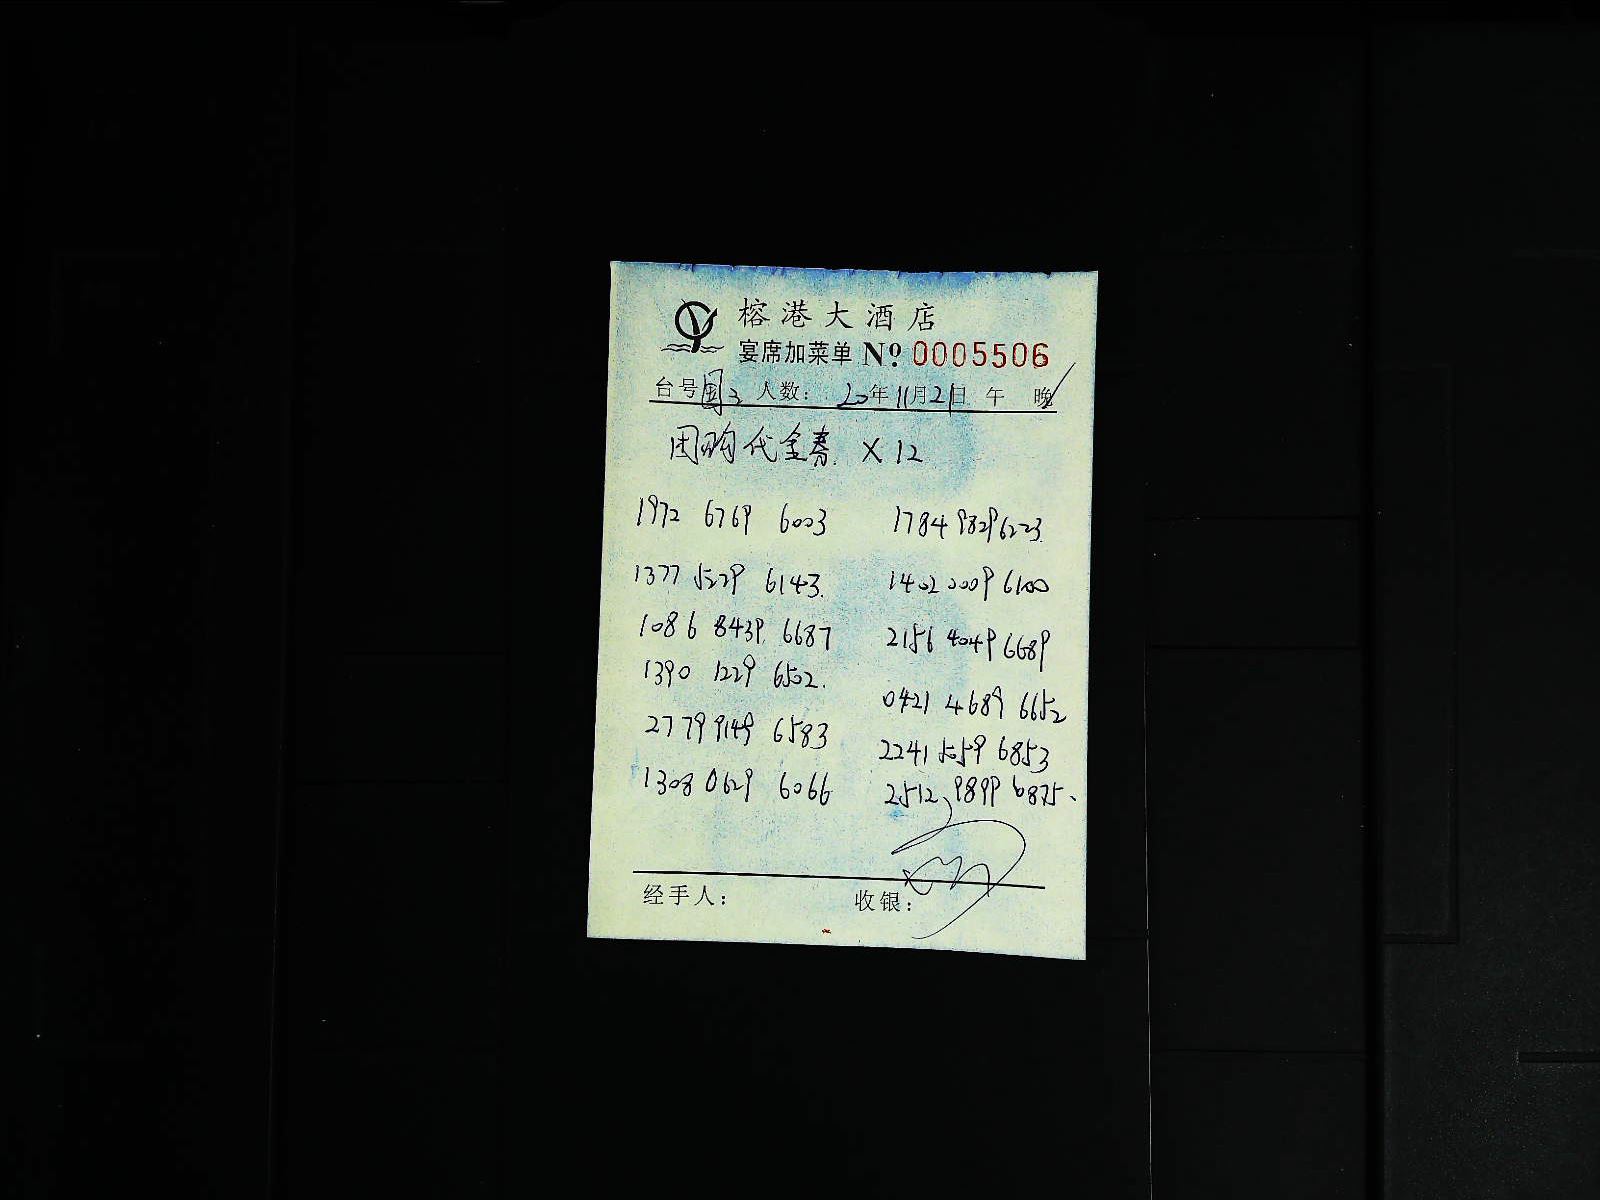 榕港大酒店
宴席加菜单 No 0005506
台号 国3 人数: 20年11月21日 午 晚
团购代金券 X 12
1972 6769 6003 1784 9829 6223
1377 5229 6143. 1402 0009 6100
1086 8439 6687 2156 4049 6689
1390 1229 6502. 0421 4689 6652
2779 9149 6583 2241 5059 6853
1308 0629 6066 2512 9899 6875.
经手人: 收银: